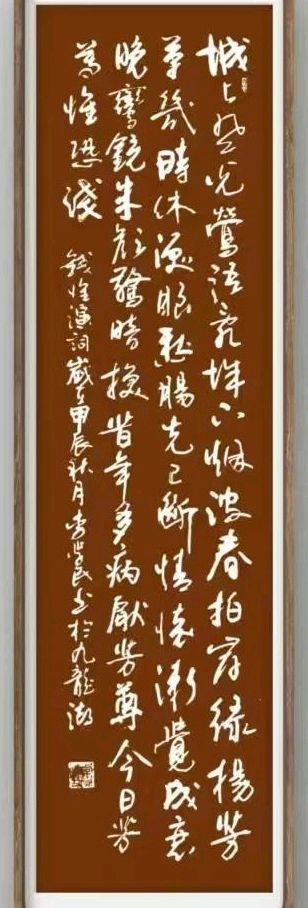 城上風光鶯語亂城下烟波春拍岸綠楊芳
草幾時休淚眼愁腸先已斷情懷漸覺成衰
晚鸞鏡朱顏驚暗換昔年多病厭芳尊今日芳
尊惟恐淺
錢惟演詞歲在甲辰秋月李民書於九龍湖